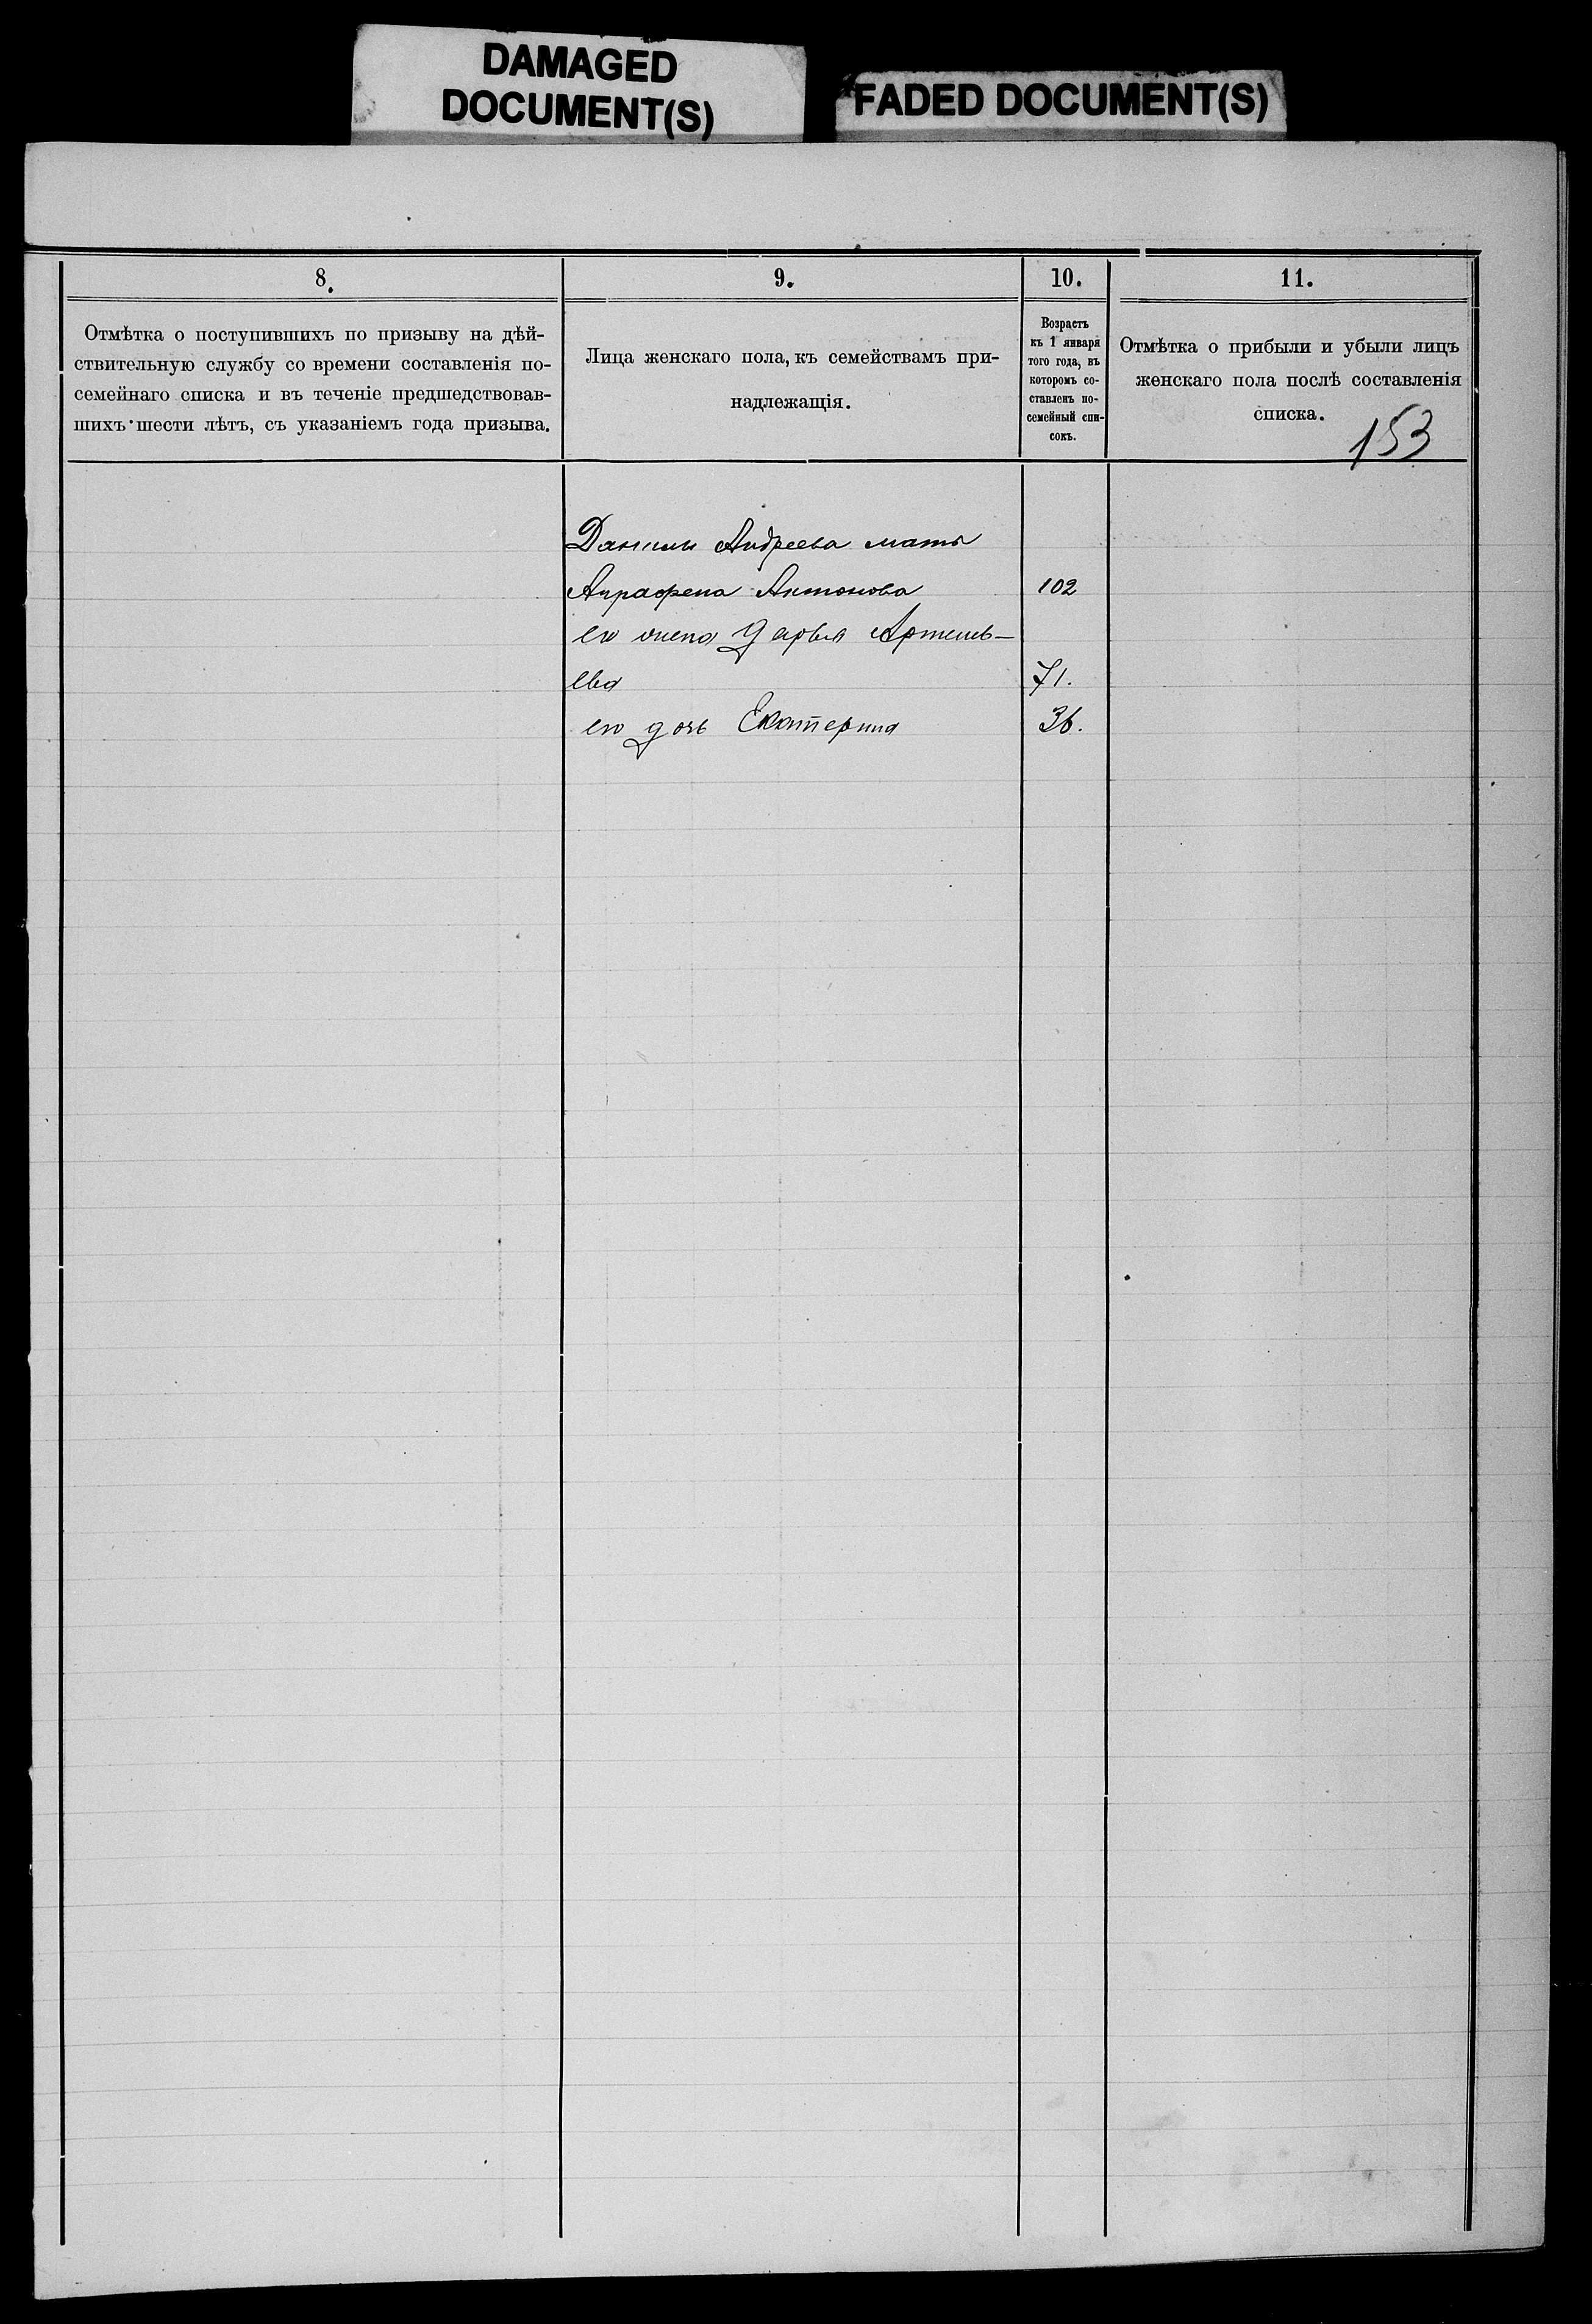 DAMAGED
DOCUMENT(S)
FADED DOCUMENT(S)
8.
Отмѣтка о поступившихъ по призыву на дѣй-
ствительную службу со времени составленія по-
семейнаго списка и въ теченіе предшедствовав-
шихъ шести лѣтъ, съ указаніемъ года призыва.
9.
Лица женскаго пола, къ семействамъ при-
надлежащія.
10.
Возрастъ
къ 1 января
того года, въ
которомъ со-
ставленъ по-
семейный спи-
сокъ.
11.
Отмѣтка о прибыли и убыли лицъ
женскаго пола послѣ составленія
списка.
153
Данилы Андреева мать
Аграфена Антонова 102
его жена Дарья Артемь-
ева 71.
его дочь Екатерина 36.